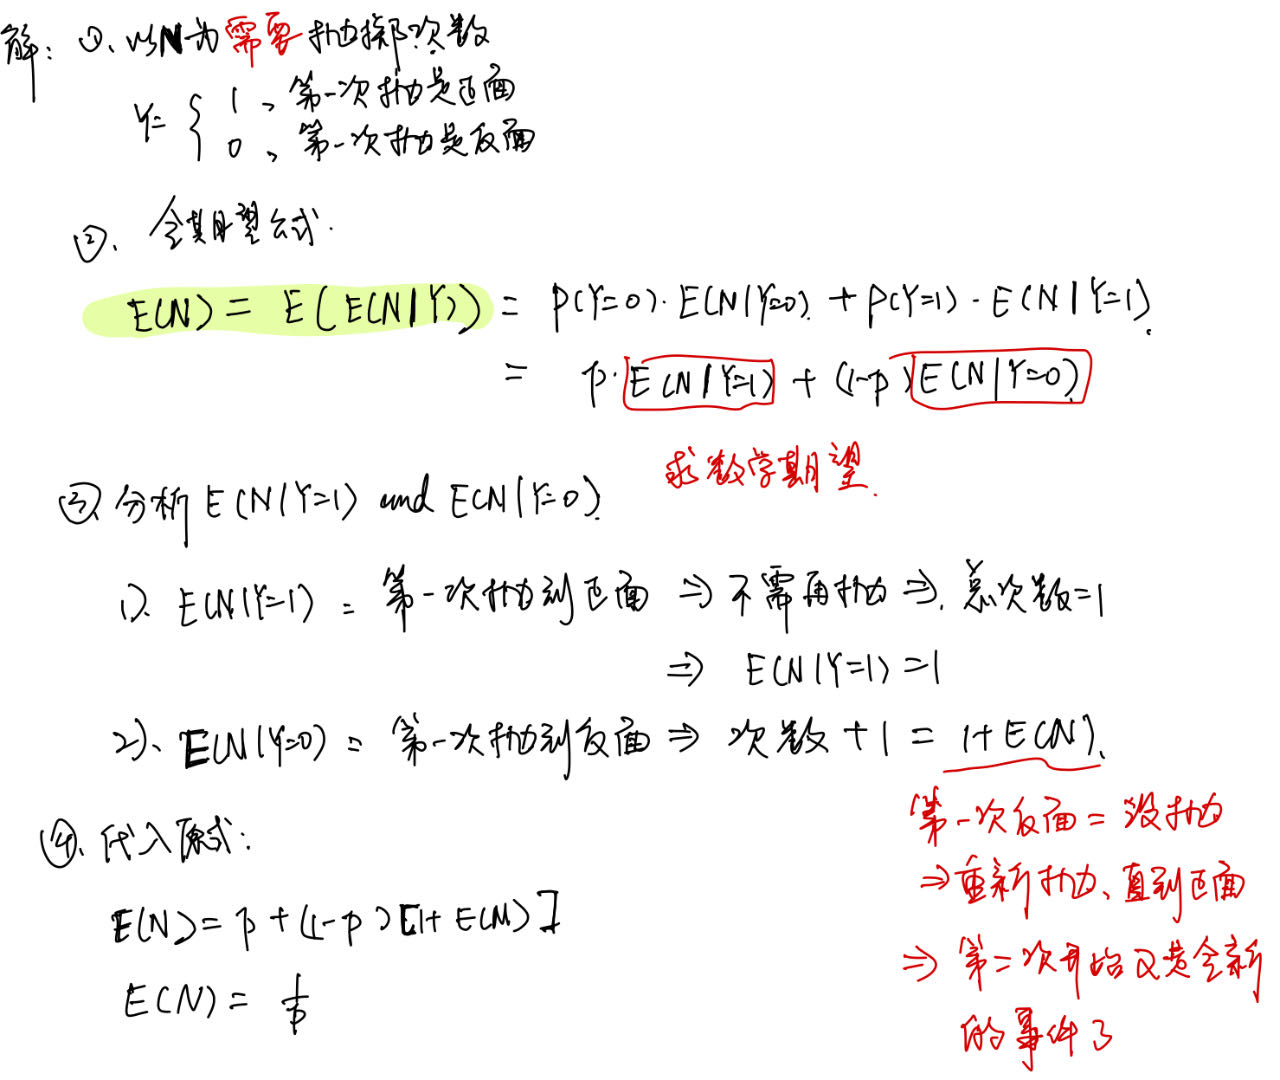 解: ①. 以N为需要抛掷次数
Y= { 1 、第一次抛是正面
0 、第一次抛是反面
②. 全期望公式.
E(N) = E(E(N|Y)) = P(Y=0)·E(N|Y=0) + P(Y=1)·E(N|Y=1).
= p·E(N|Y=1) + (1-p)E(N|Y=0)
求数学期望.
③ 分析E(N|Y=1) and E(N|Y=0).
1). E(N|Y=1) = 第一次抛到正面 ⇒ 不需再抛 ⇒. 总次数=1
⇒ E(N|Y=1) =1
2)、E(N|Y=0) = 第一次抛到反面 ⇒ 次数+1 = 1+E(N).
第一次反面=没抛
⇒重新抛、直到正面
⇒ 第二次开始又是全新
的事件了
④. 代入原式:
E(N)= p+(1-p)[1+E(N)]
E(N) = 1/p